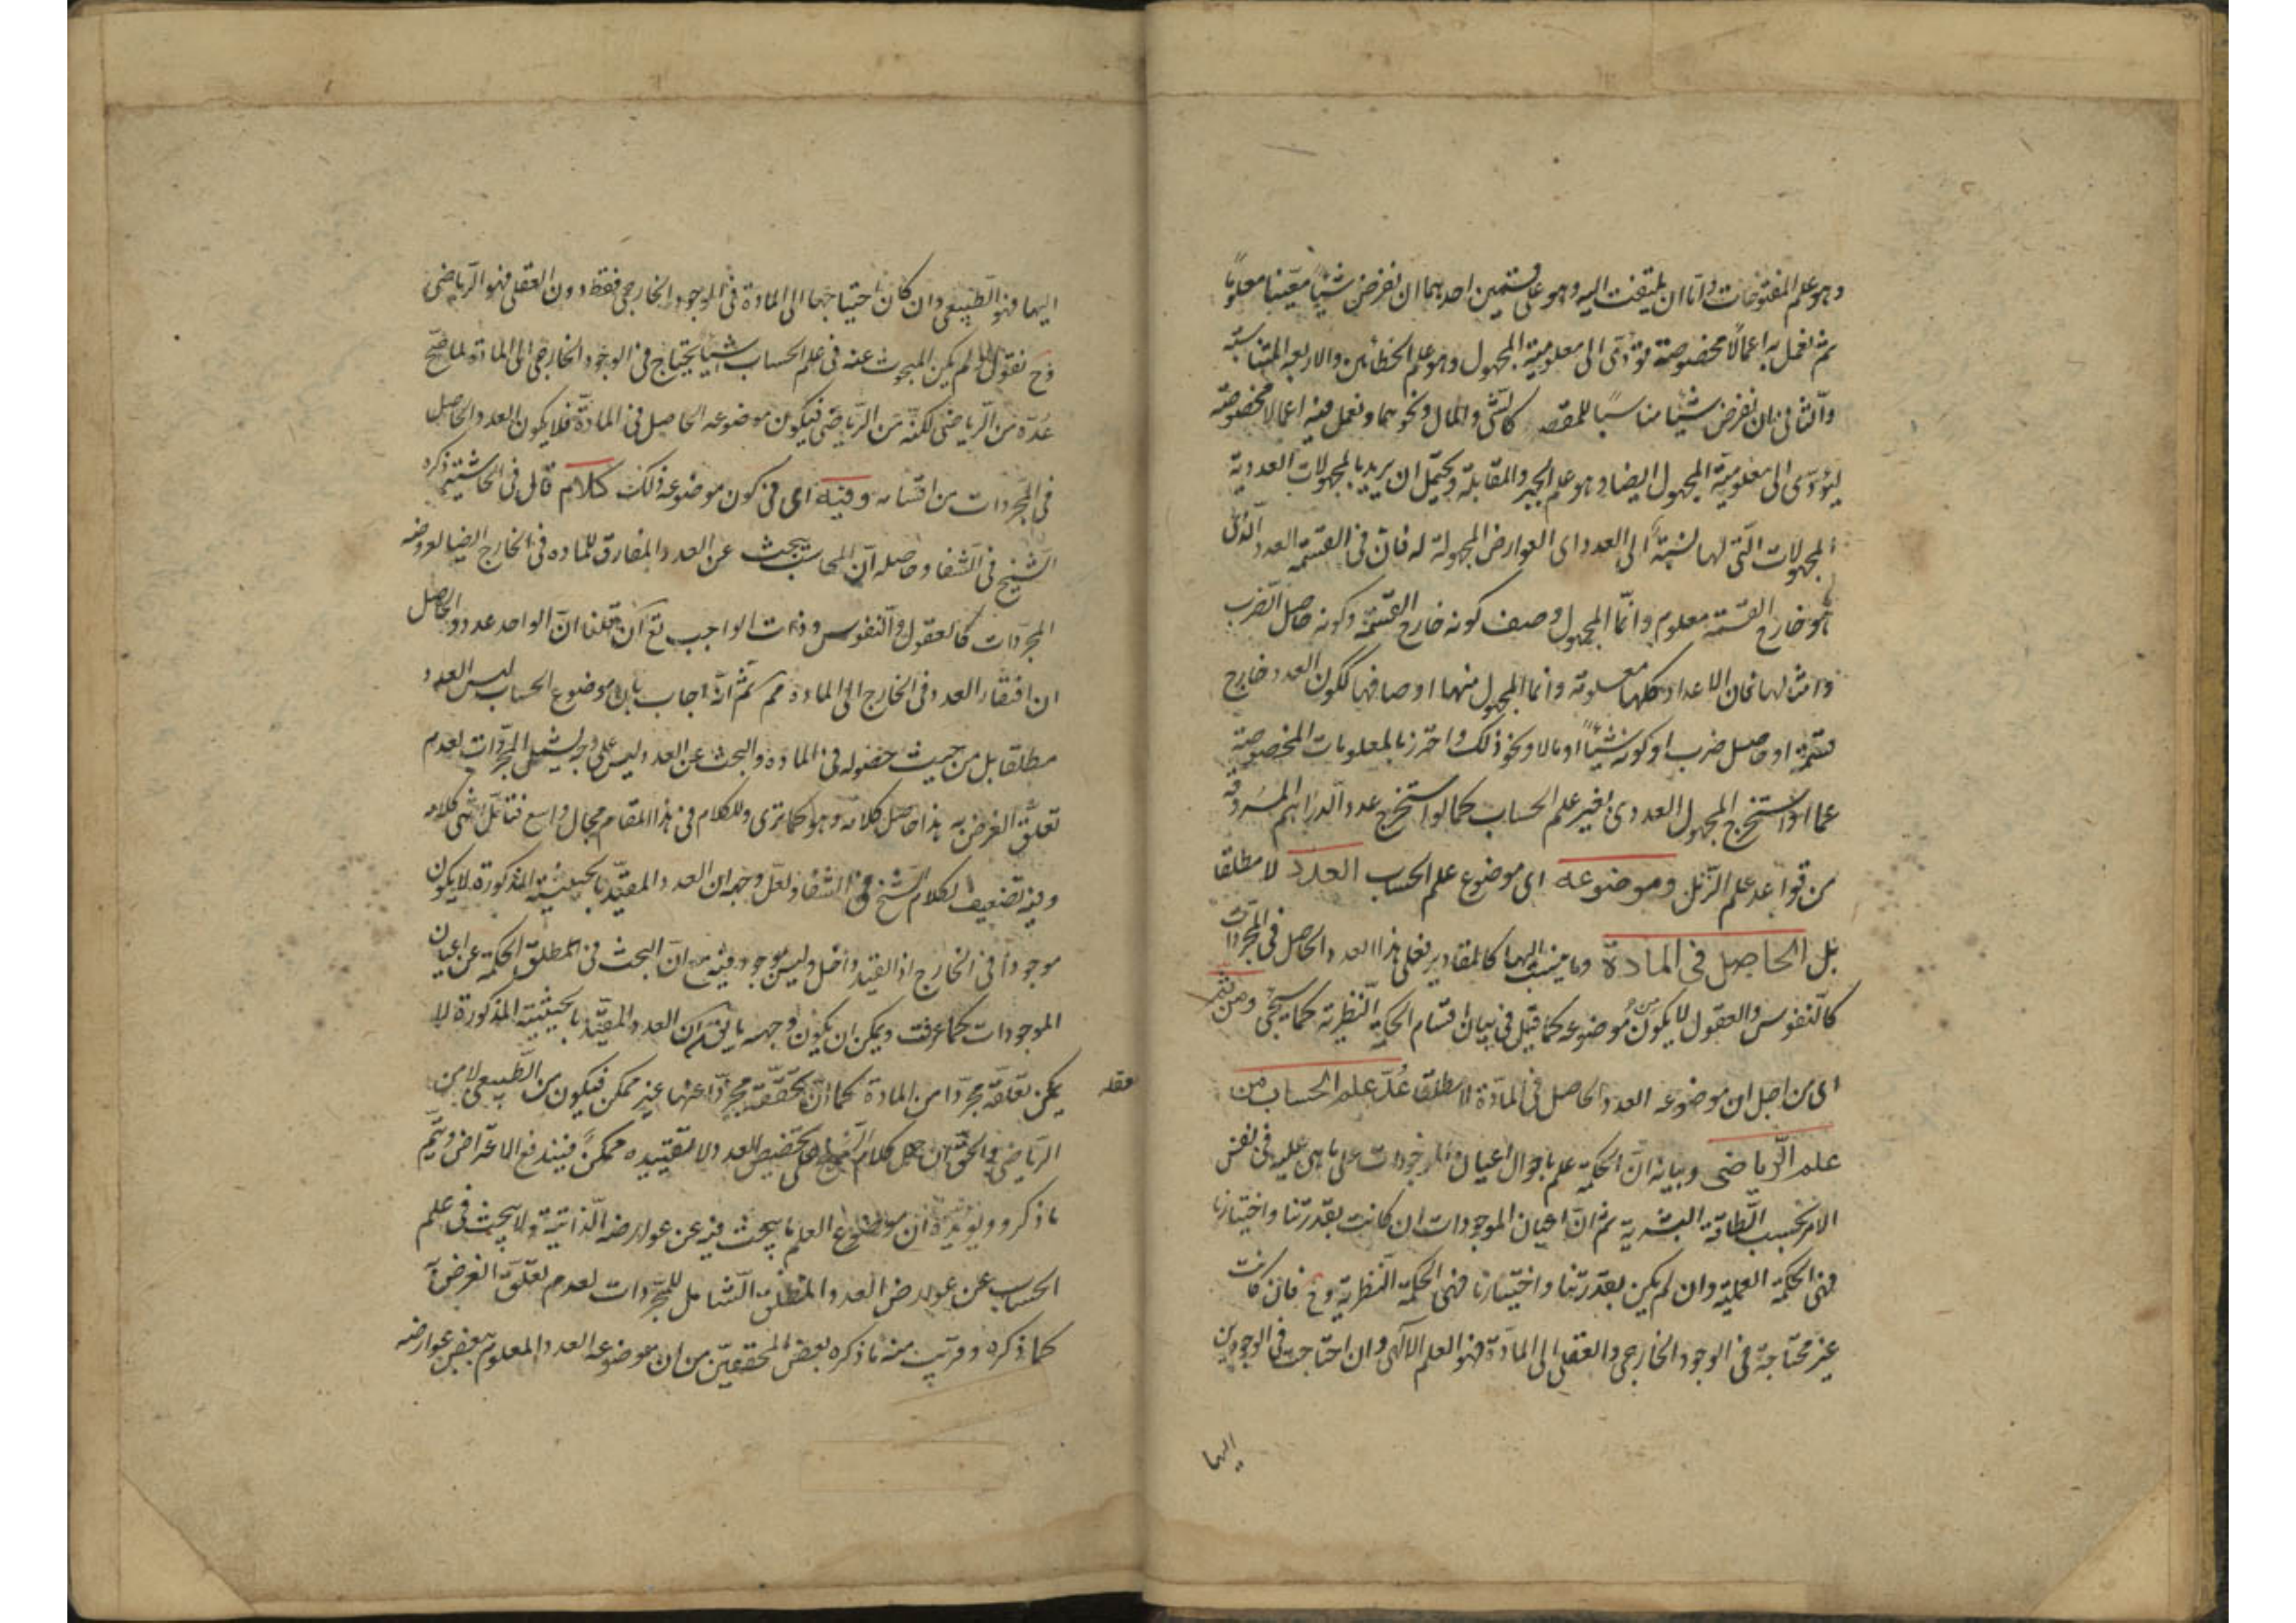 وهو علم المفتوحات واما ان يلتفت اليه وهو على قسمين احدهما ان نفرض شيئاً معيّنا معلوماً
ثم نعمل به اعمالاً مخصوصة تؤدّى الى معلومية المجهول وهو علم الخطائين والاربعة المتناسبة
والثانى ان نفرض شيئا مناسبًا للمقصد كالشئ والمال ونحوهما ونعمل فيه اعمالا مخصوصة
ليؤدّى الى معلوميّة المجهول ايضا وهو علم الجبر والمقابلة ويحتمل ان يريد بالمجهولات العددية
المجهولات التى لها نسبة الى العدد اى العوارض المجهولة له فان فى القسمة العدد الّذى
هو خارج القسمة معلوم وانّما المجهول وصف كونه خارج القسمة وكونه حاصل الضرب
وامثالهما فان الاعداد كلها معلومة وانما المجهول منها اوصافها ككون العدد خارج
قسمة او حاصل ضرب او كونه شيئاً او مالا ونحو ذلك واحترز بالمعلومات المخصوصة
عما اذا استخرج المجهول العددى بغير علم الحساب كما لو استخرج عدد الدراهم المسروقة
من قواعد علم الرّمل وموضوعه اى موضوع علم الحساب العدد لا مطلقا
بل الحاصل فى المادة وما ينسب اليها كالمقادير فعلى هذا العدد الحاصل فى المجردات
كالنفوس والعقول لا يكون من موضوعه كما قيل فى بيان اقسام الحكمة النّظرية كما سيجئ ومن ثم
اى من اجل ان موضوعه العدد الحاصل فى المادّة لا مطلقا عُدّ علم الحساب من
علم الرّياضى وبيانه انّ الحكمة علم باحوال اعيان الموجودات على ما هى عليه فى نفس
الامر بحسب الطّاقة البشرية ثم انّ اعيان الموجودات ان كانت بقدرتنا واختيارنا
فهى الحكمة العملية وان لم يكن بقدرتنا واختيارنا فهى الحكمة النّظرية وح فان كانت
غير محتاجة فى الوجود الخارجى والعقلى الى المادّة فهو العلم الالٓهى وان احتاجت فى الوجودين
اليها
اليها فهو الطّبيعى وان كان احتياجها الى المادّة فى الوجود الخارجى فقط دون العقلى فهو الرّياضى
وح نقول لو لم يكن المبحوث عنه فى علم الحساب شيئا يحتاج فى الوجود الخارجى الى المادّة لما صحّ
عدّه من الرّياضى لكنّه من الرّياضى فيكون موضوعه الحاصل فى المادّة فلا يكون العدد الحاصل
فى المجردات من اقسامه وفيه اى فى كون موضوعه ذلك كلام قال فى الحاشية ذكره
الشّيخ فى الشّفا وحاصله انّ المحاسب يبحث عن العدد المفارق للماده فى الخارج ايضا لعروضه
المجرّدات كالعقول والنّفوس وذات الواجب تع ان قلنا انّ الواحد عدد والحاصل
ان افتقار العدد فى الخارج الى المادة مم ثم انّه اجاب بانّ موضوع الحساب ليس العدد
مطلقا بل من حيث حضوله فى الماده والبحث عن العدد ليس على وجه يشمل المجرّدات لعدم
تعلّق الغرض به هذا حاصل كلامه وهو كما ترى وللكلام فى هذا المقام مجال واسع فتامّل انتهى كلامه
وفيه تضعيف لكلام الشّيخ فى الشّفا ولعل وجهه ان العدد المقيّد بالحيثيّة المذكورة لا يكون
موجوداً فى الخارج اذ القيد داخل وليس بموجود فيه مع انّ البحث فى مطلق الحكمة عن اعيان
الموجودات كما عرفت ويمكن ان يكون وجهه ما يق ان العدد المقيّد بالحيثيّة المذكورة لا
يمكن تعلّقه مجرّدا من المادّة كما انّ تحقّقه مجرّدا عنها غير ممكن فيكون من الطّبيعى لا من
عقله
الرّياضى والحق ان حمل كلام الشيخ على تخصيص العدد لا تقييده ممكن فيندفع الاعتراض ويتمّ
ما ذكره ويؤيده ان موضوع العلم ما يبحث فيه عن عوارضه الذّاتية ولا يبحث فى علم
الحساب عن عوارض العدد المطلق الشّامل للمجّردات لعدم تعلّق الغرض به
كما ذكره وقريب منه ما ذكره بعض المحققين من ان موضوعه العدد المعلوم بعض عوارضه